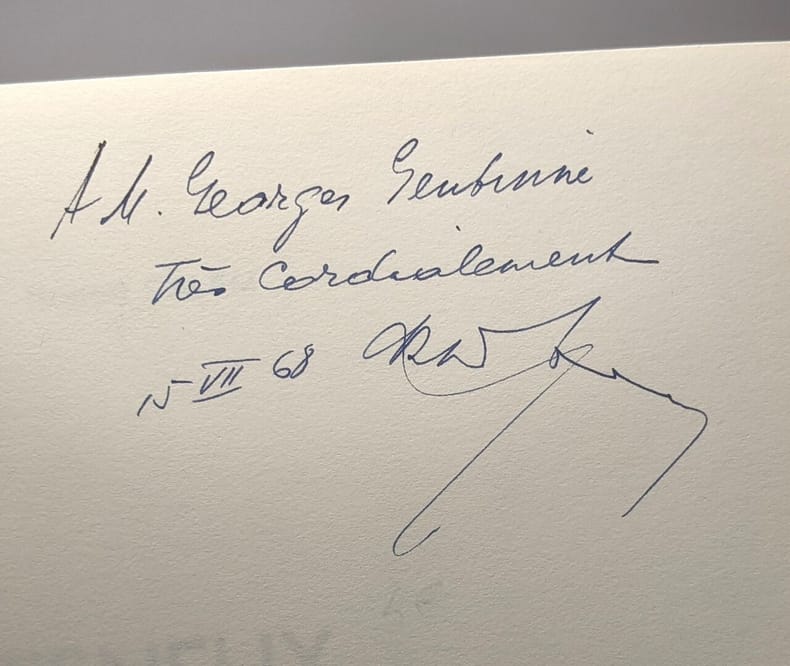 A M. Georges
Très Cordialement
15 VII 68